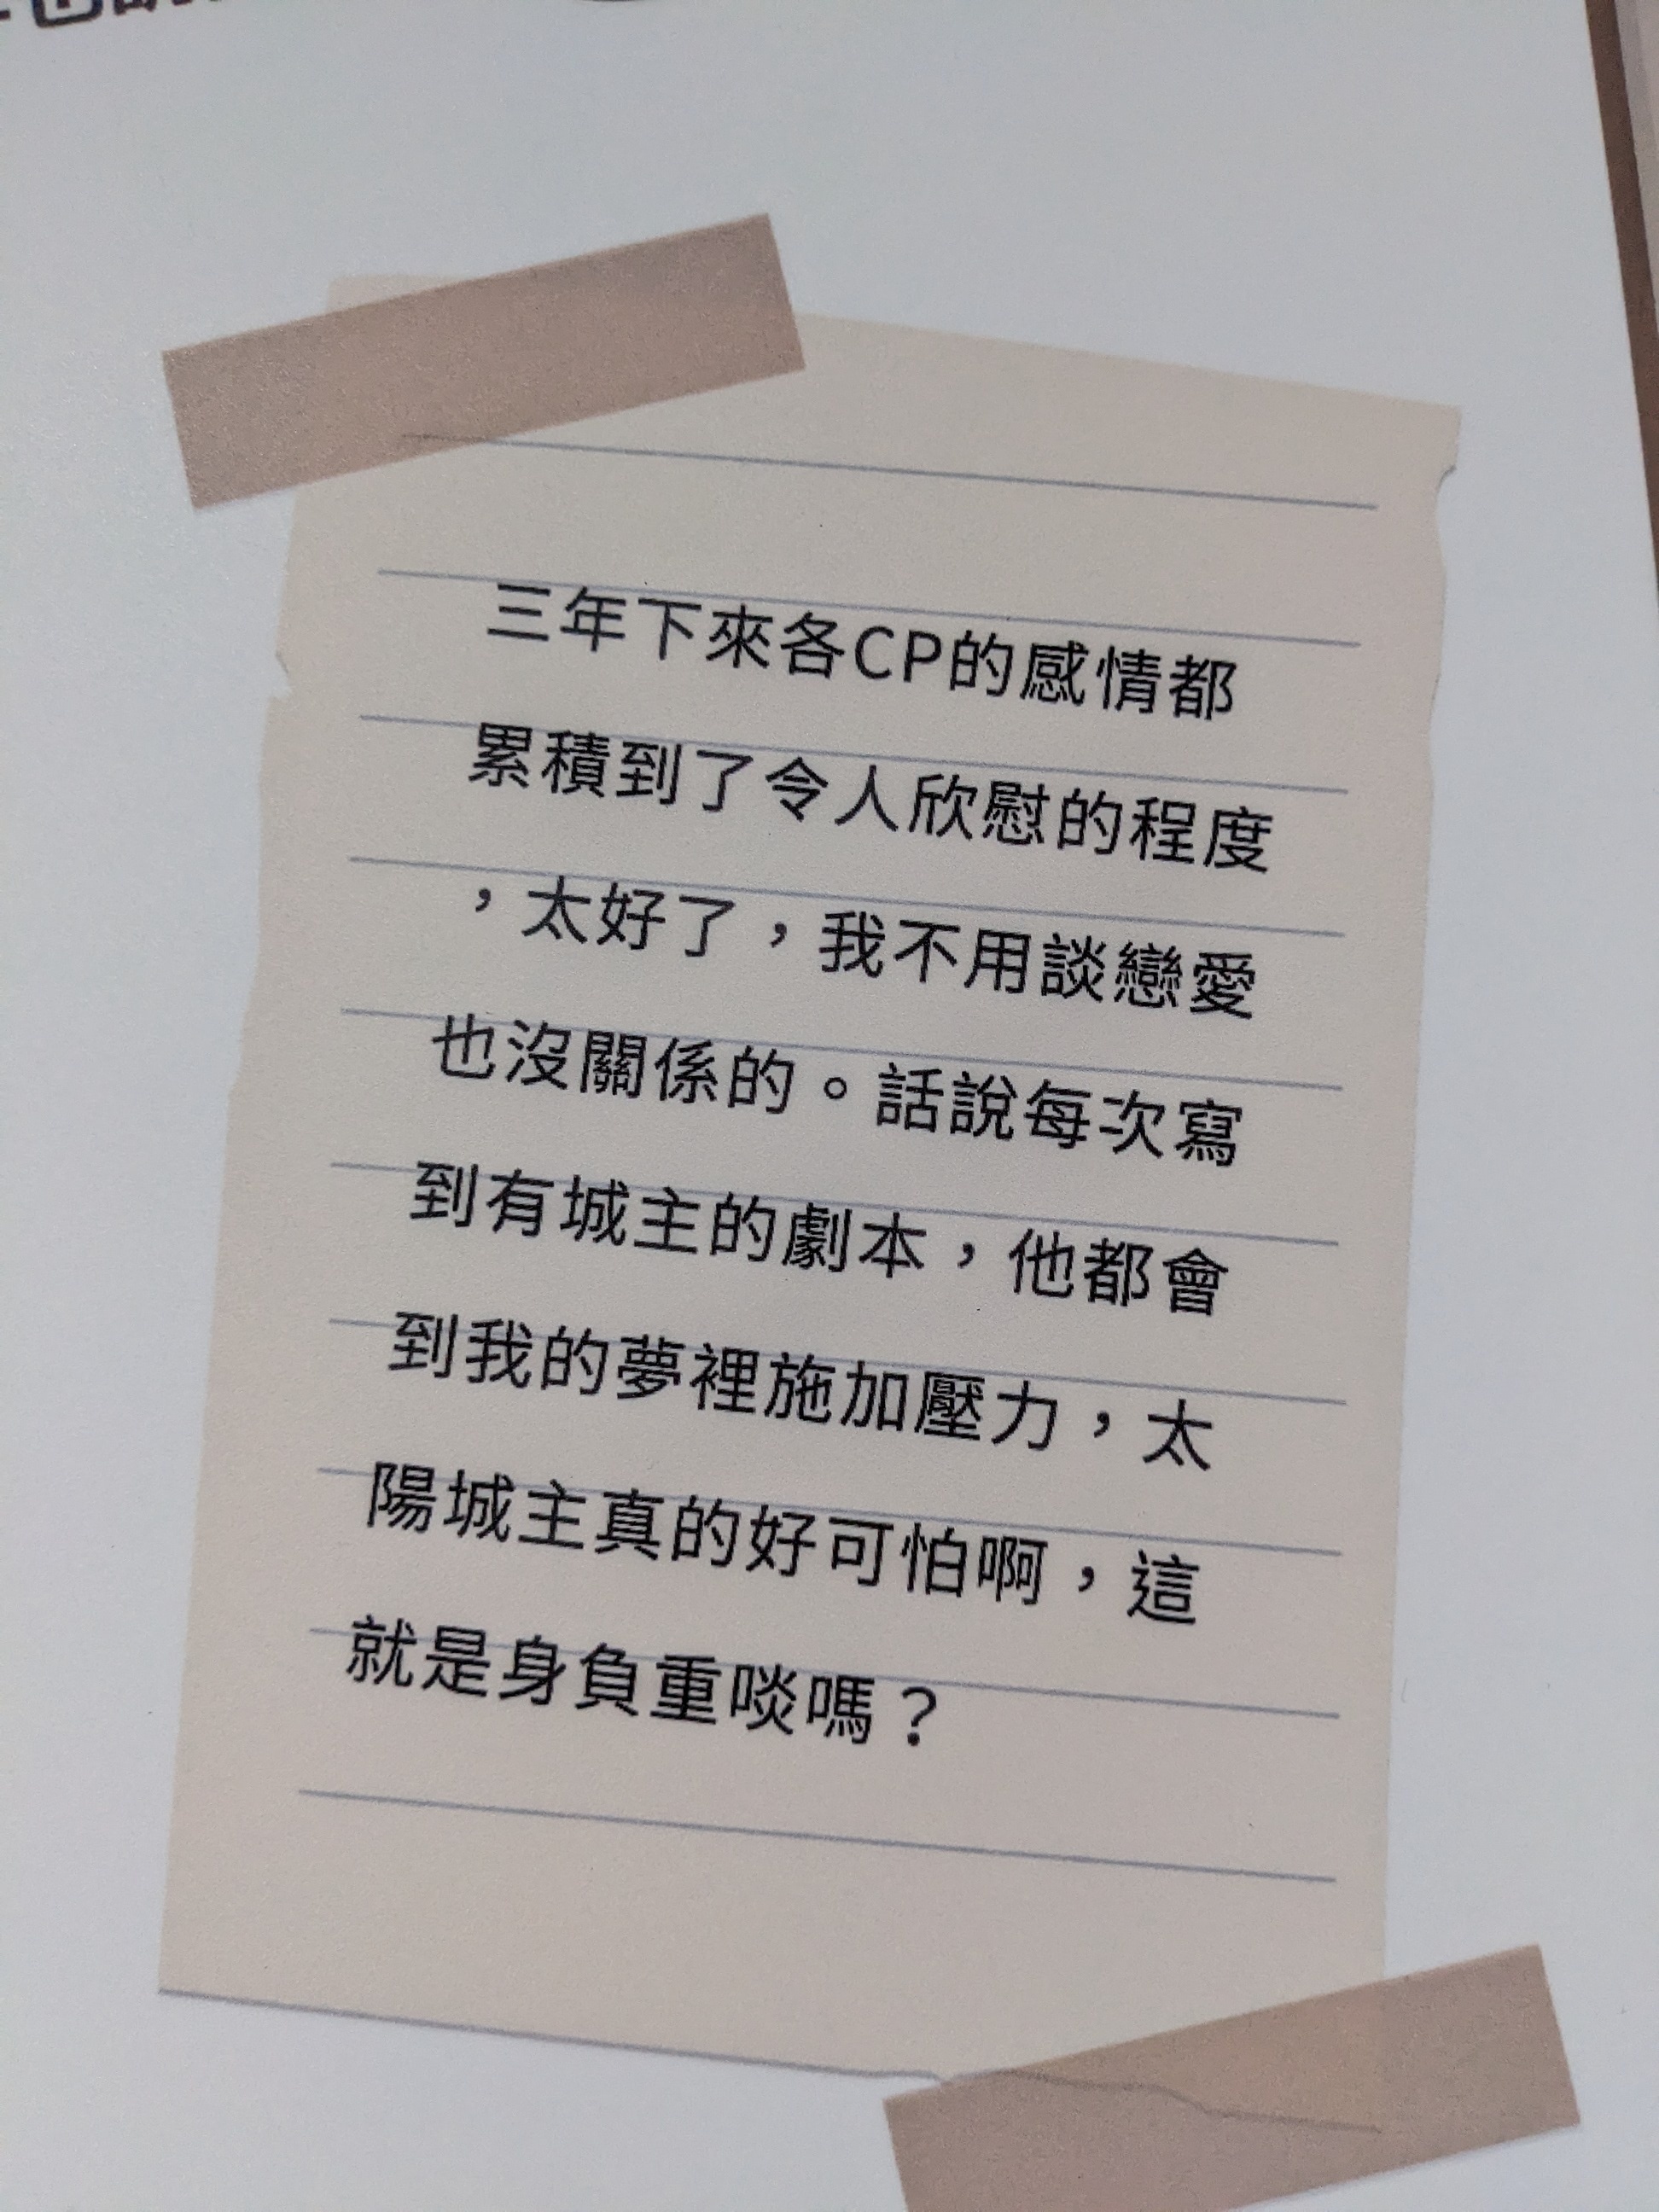 三年下來各CP的感情都
累積到了令人欣慰的程度
，太好了，我不用談戀愛
也沒關係的。話說每次寫
到有城主的劇本，他都會
到我的夢裡施加壓力，太
陽城主真的好可怕啊，這
就是身負重啖嗎？